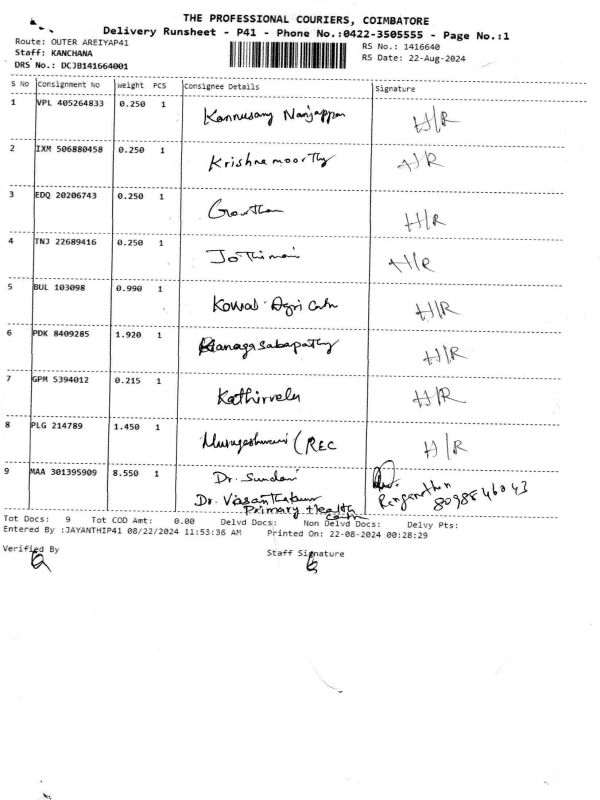 THE PROFESSIONAL COURIERS, COIMBATORE
Delivery Runsheet - P41 - Phone No.:0422-3505555 - Page No.:1
Route: OUTER AREIYAP41 RS No.: 1416640
Staff: KANCHANA RS Date: 22-Aug-2024
DRS No.: DCJB141664001
S No Consignment No Weight PCS Consignee Details Signature
1 VPL 405264833 0.250 1 H/R
2 IXM 506880458 0.250 1 Krishnamoorthy H/R
3 EDQ 20206743 0.250 1 Gowtham H/R
4 TNJ 22689416 0.250 1 Jothimani H/R
5 BUL 103098 0.990 1 Kowai Agri H/R
6 PDK 8409285 1.920 1 Kanagasabapathy H/R
7 GPM 5394012 0.215 1 Kathirvelu H/R
8 PLG 214789 1.450 1 Murugeshwari (REC H/R
9 MAA 301395909 8.550 1 Dr. Sundari
Dr. Vasanthakumar Renganathan
Primary Health 8098546043
Tot Docs: 9 Tot COD Amt: 0.00 Delvd Docs: Non Delvd Docs: Delvy Pts:
Entered By :JAYANTHIP41 08/22/2024 11:53:36 AM Printed On: 22-08-2024 00:28:29
Verified By Staff Signature